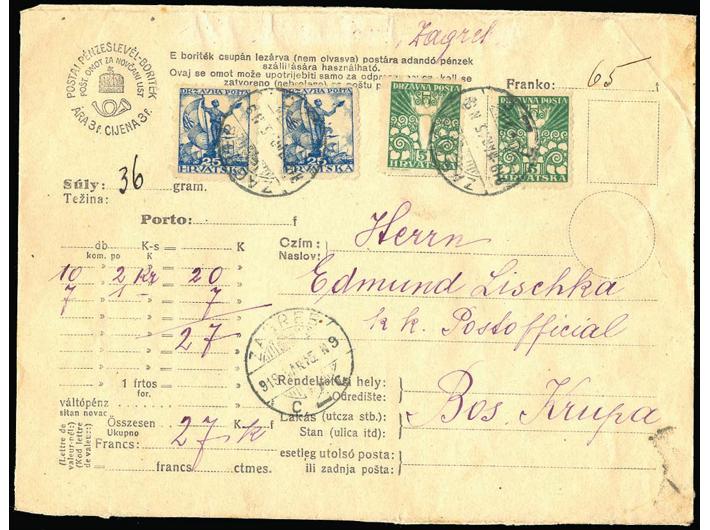 Zagreb
POSTAI PÉNZESLEVÉL-BORITÉK
POŠT. OMOT ZA NOVČANI LIST
ÁRA 3 F. CIJENA 3 F.
E boriték csupán lezárva (nem olvasva) postára adandó pénzek
szállitására használható.
Ovaj se omot može upotrijebiti samo za odpremu koji se
zatvoreno
Franko: 65 f
DRŽAVNA POŠTA DRŽAVNA POŠTA DRŽAVNA POŠTA DRŽAVNA POŠTA
25 25 5 5
HRVATSKA HRVATSKA HRVATSKA HRVATSKA
ZAGREB ZAGREB
Súly: 36 gram.
Težina:
Porto: f
db K-s K
kom. po K
10 " 2 Kr " = 20 "
7 " 1 " = 7 "
27
Czím:
Naslov:
Herrn
Edmund Lischka
k k. Postofficial
ZAGREB 1
C
1 frtos
for.
váltópénz
sitan novac
Összesen
Ukupno
27 K f
Francs:
francs ctmes.
(Lettre de valeur-n(i):
(Kod lettre de valeur:::)
Rendeltetési hely:
Odredište:
Bos Krupa
Lakás (utcza stb.):
Stan (ulica itd):
esetleg utolsó posta:
ili zadnja pošta: